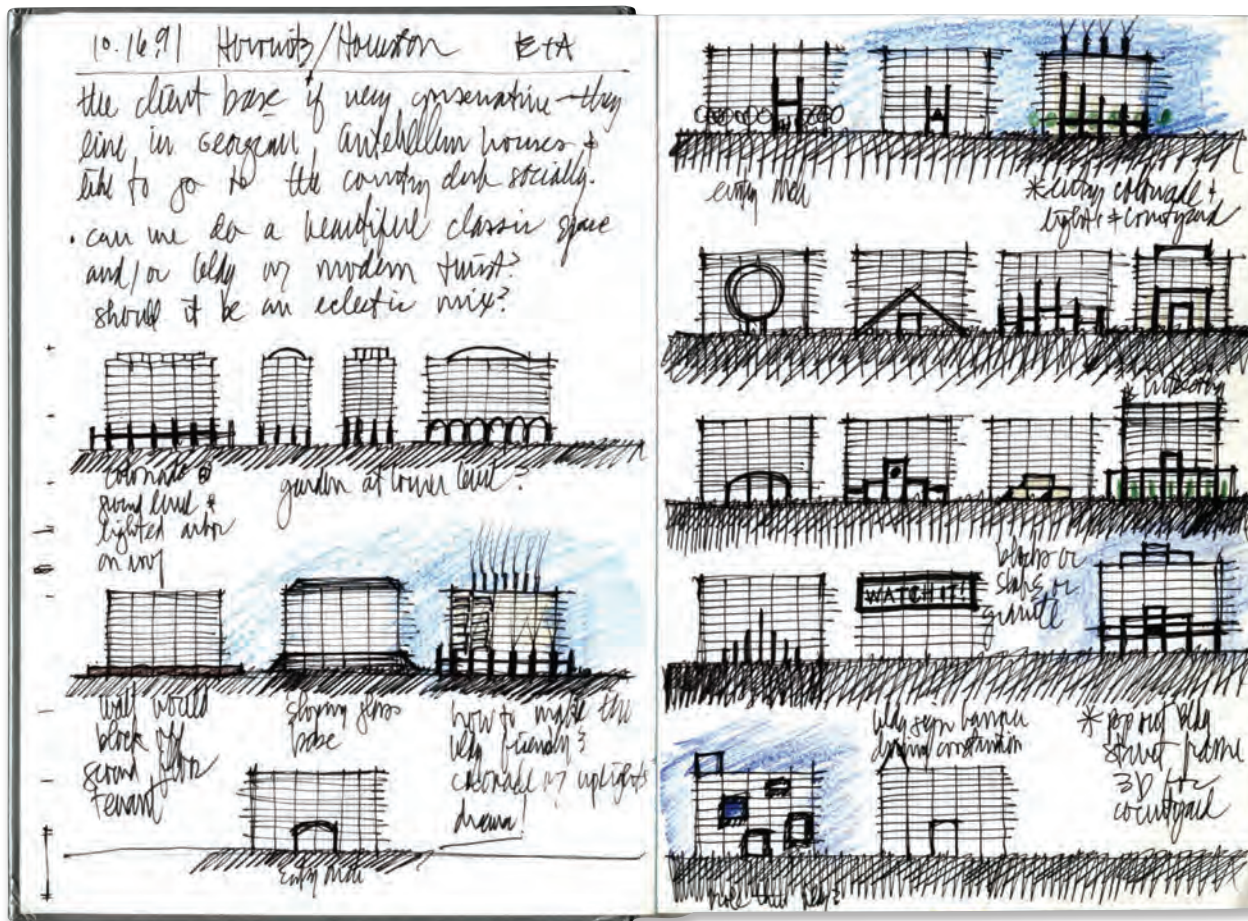 10.16.91 Horowitz/Houston E+A
the client base is very conservative - they
live in georgian, antebellum houses +
like to go to the country club socially.
• can we do a beautiful classic space
and/or bldg w/ modern twist?
should it be an eclectic mix?
colonnade @
ground level +
lighted arbor
garden at lower level?
wall would
block off
second floor
tenant
sloping glass
base
how to make the
bldg friendly?
colonnade w/ uplights
drama!
entry
entry
*entry colonnade +
lights + courtyard
*
blocks or
slabs or
granite
WATCH IT!
bldg sign banner
during construction
* pop out bldg
struct frame
3D for
courtyard
bldg?